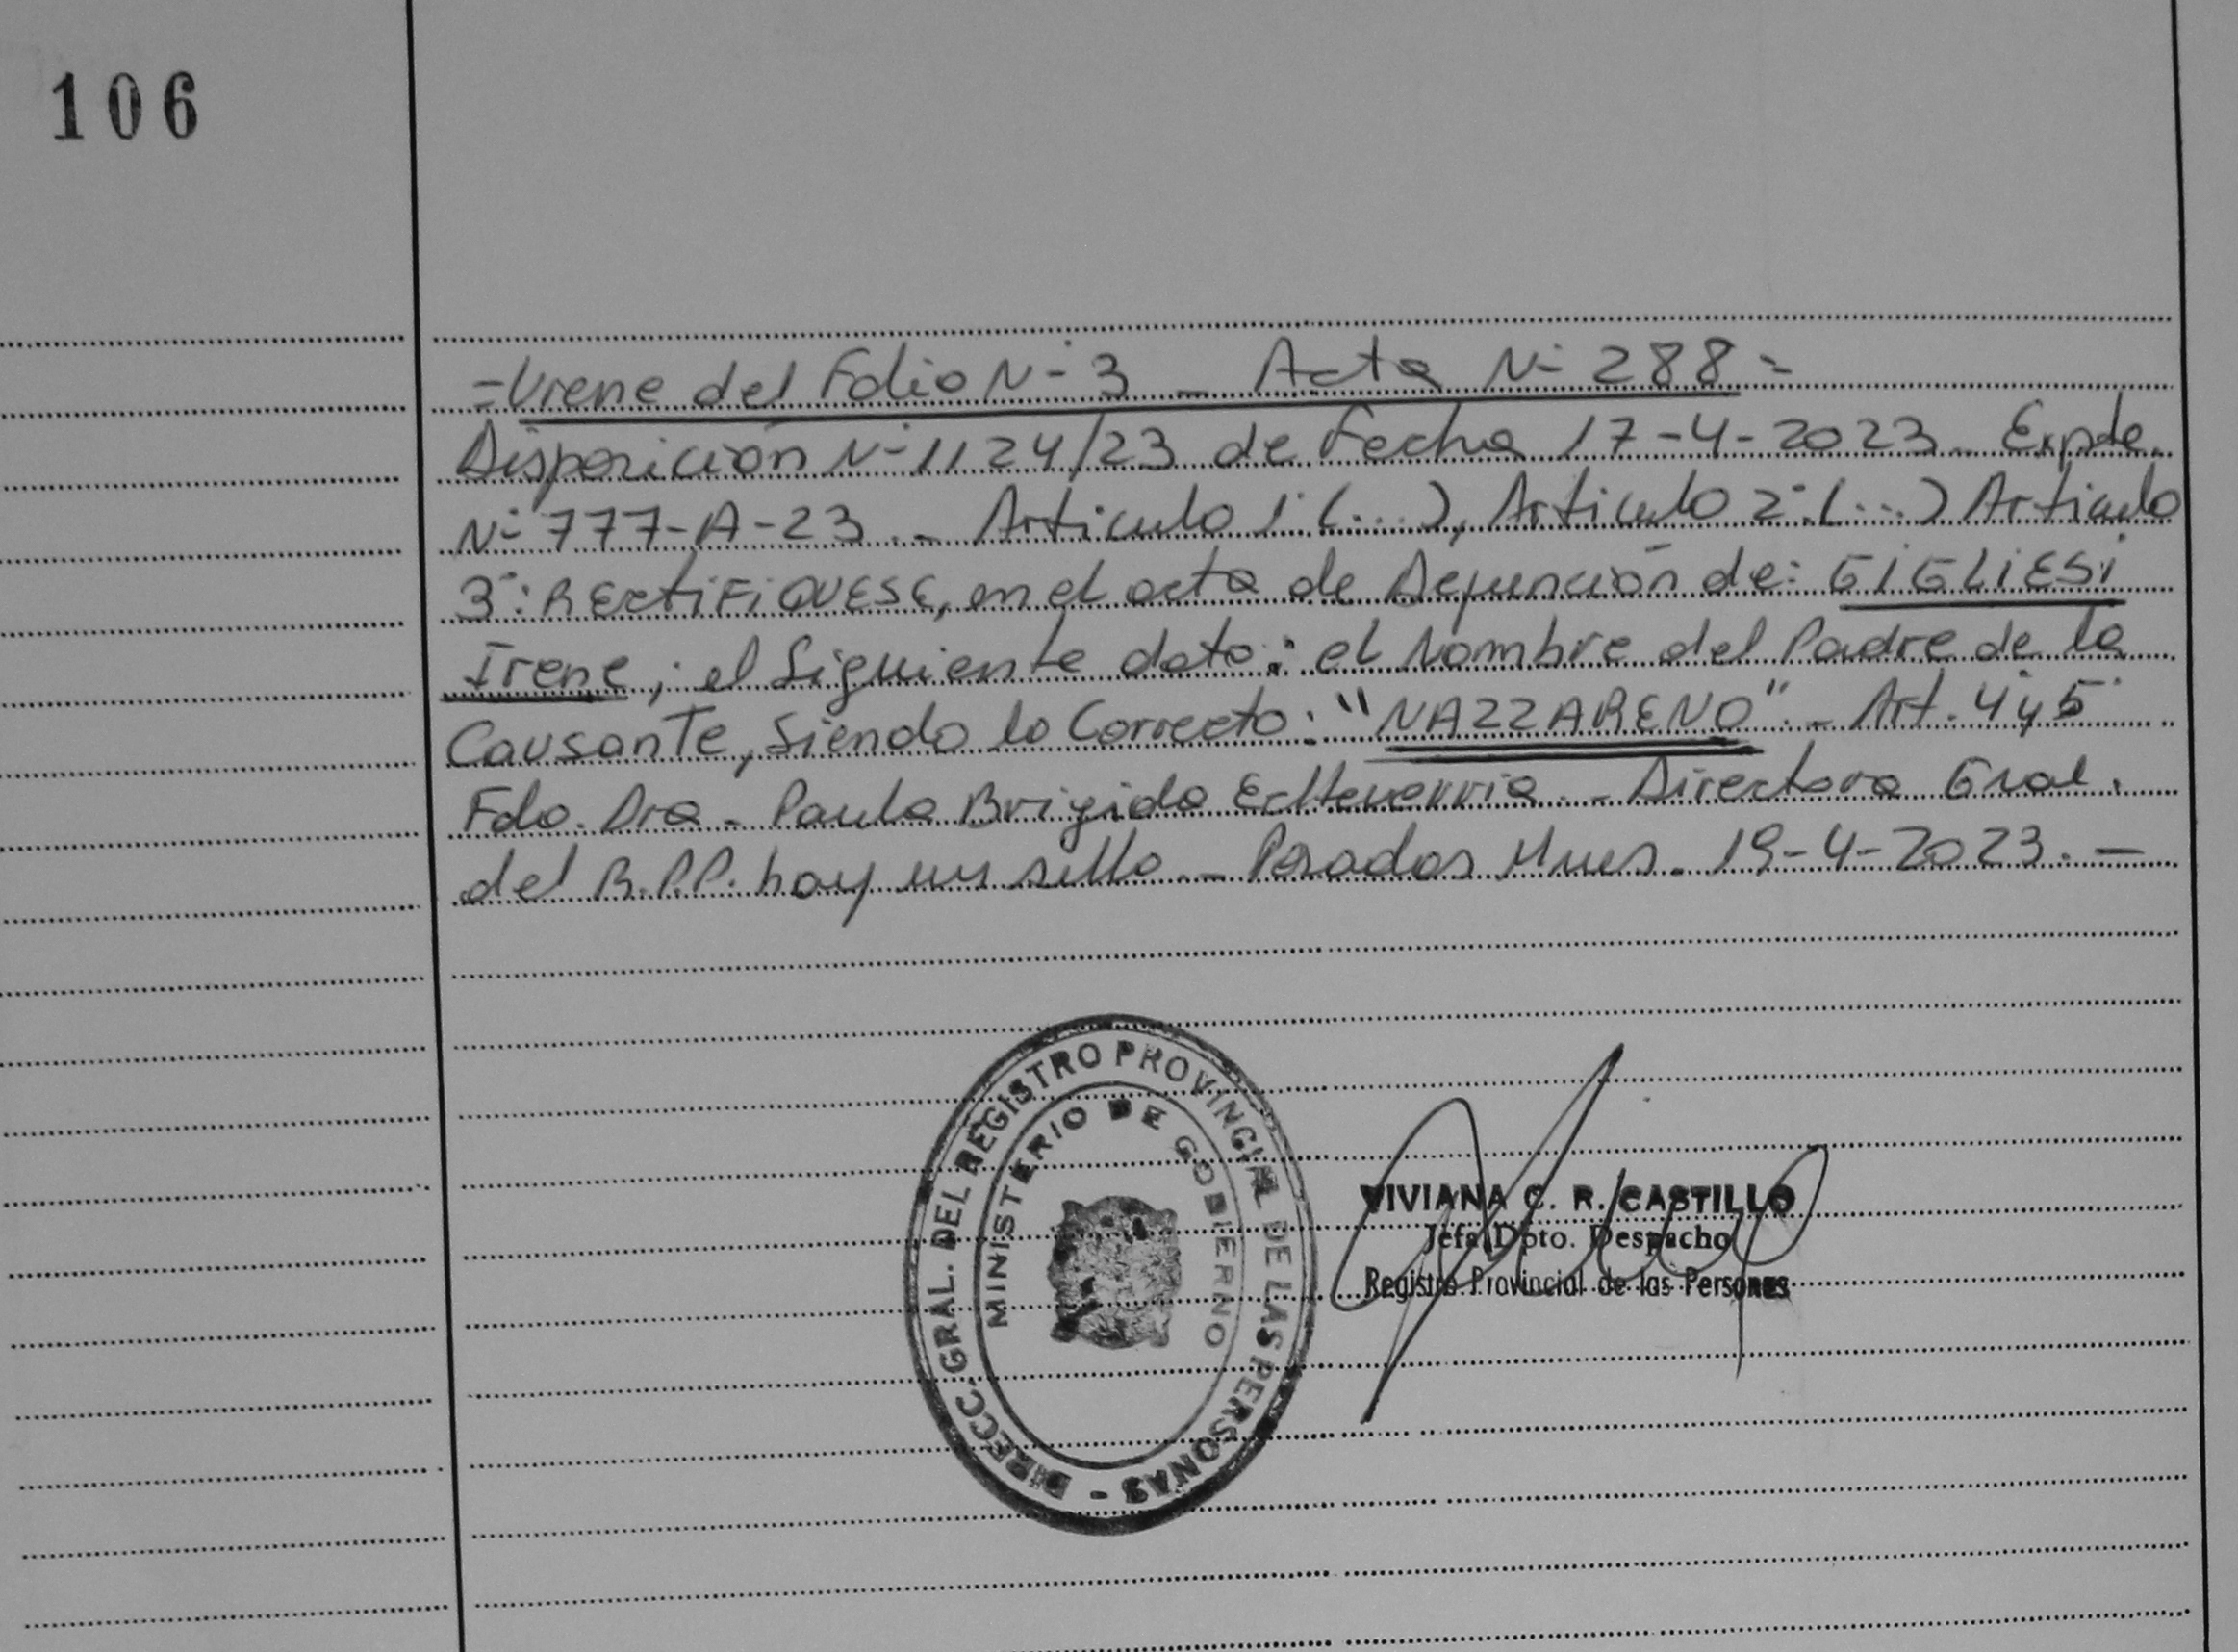 106
=Viene del Folio N° 3 - Acta N° 288=
Disposición N° 1124/23 de Fecha 17-4-2023_ Expte.
N° 777-A-23._ Articulo 1°(...), Articulo 2°(...) Articulo
3°: RECTIFIQUESE, en el acta de Defunción de: GIGLIESI
Irene; el Siguiente dato: el Nombre del Padre de la
Causante, Siendo lo Correcto: "NAZZARENO"._ Art. 4 y 5
Fdo. Dra_ Paula Brigida Echeverria._ Directora Gral.
del R.P.P. hay un sello_ Posadas Mnes. 19-4-2023._
DIRECC. GRAL. DEL REGISTRO PROVINCIAL DE LAS PERSONAS -
MINISTERIO DE GOBIERNO
VIVIANA C. R. CASTILLO
Jefa Dpto. Despacho
Registro Provincial de las Personas